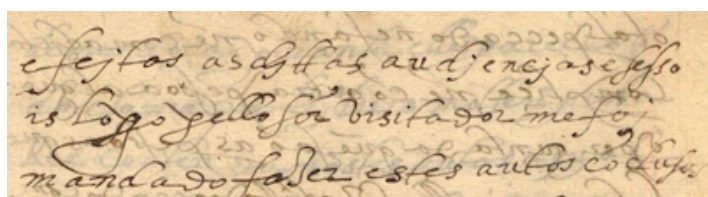 efejtos as dittas audjencjas e sesso
is logo pello sor visitador me foj
mandado fazer estes autos cõclusos